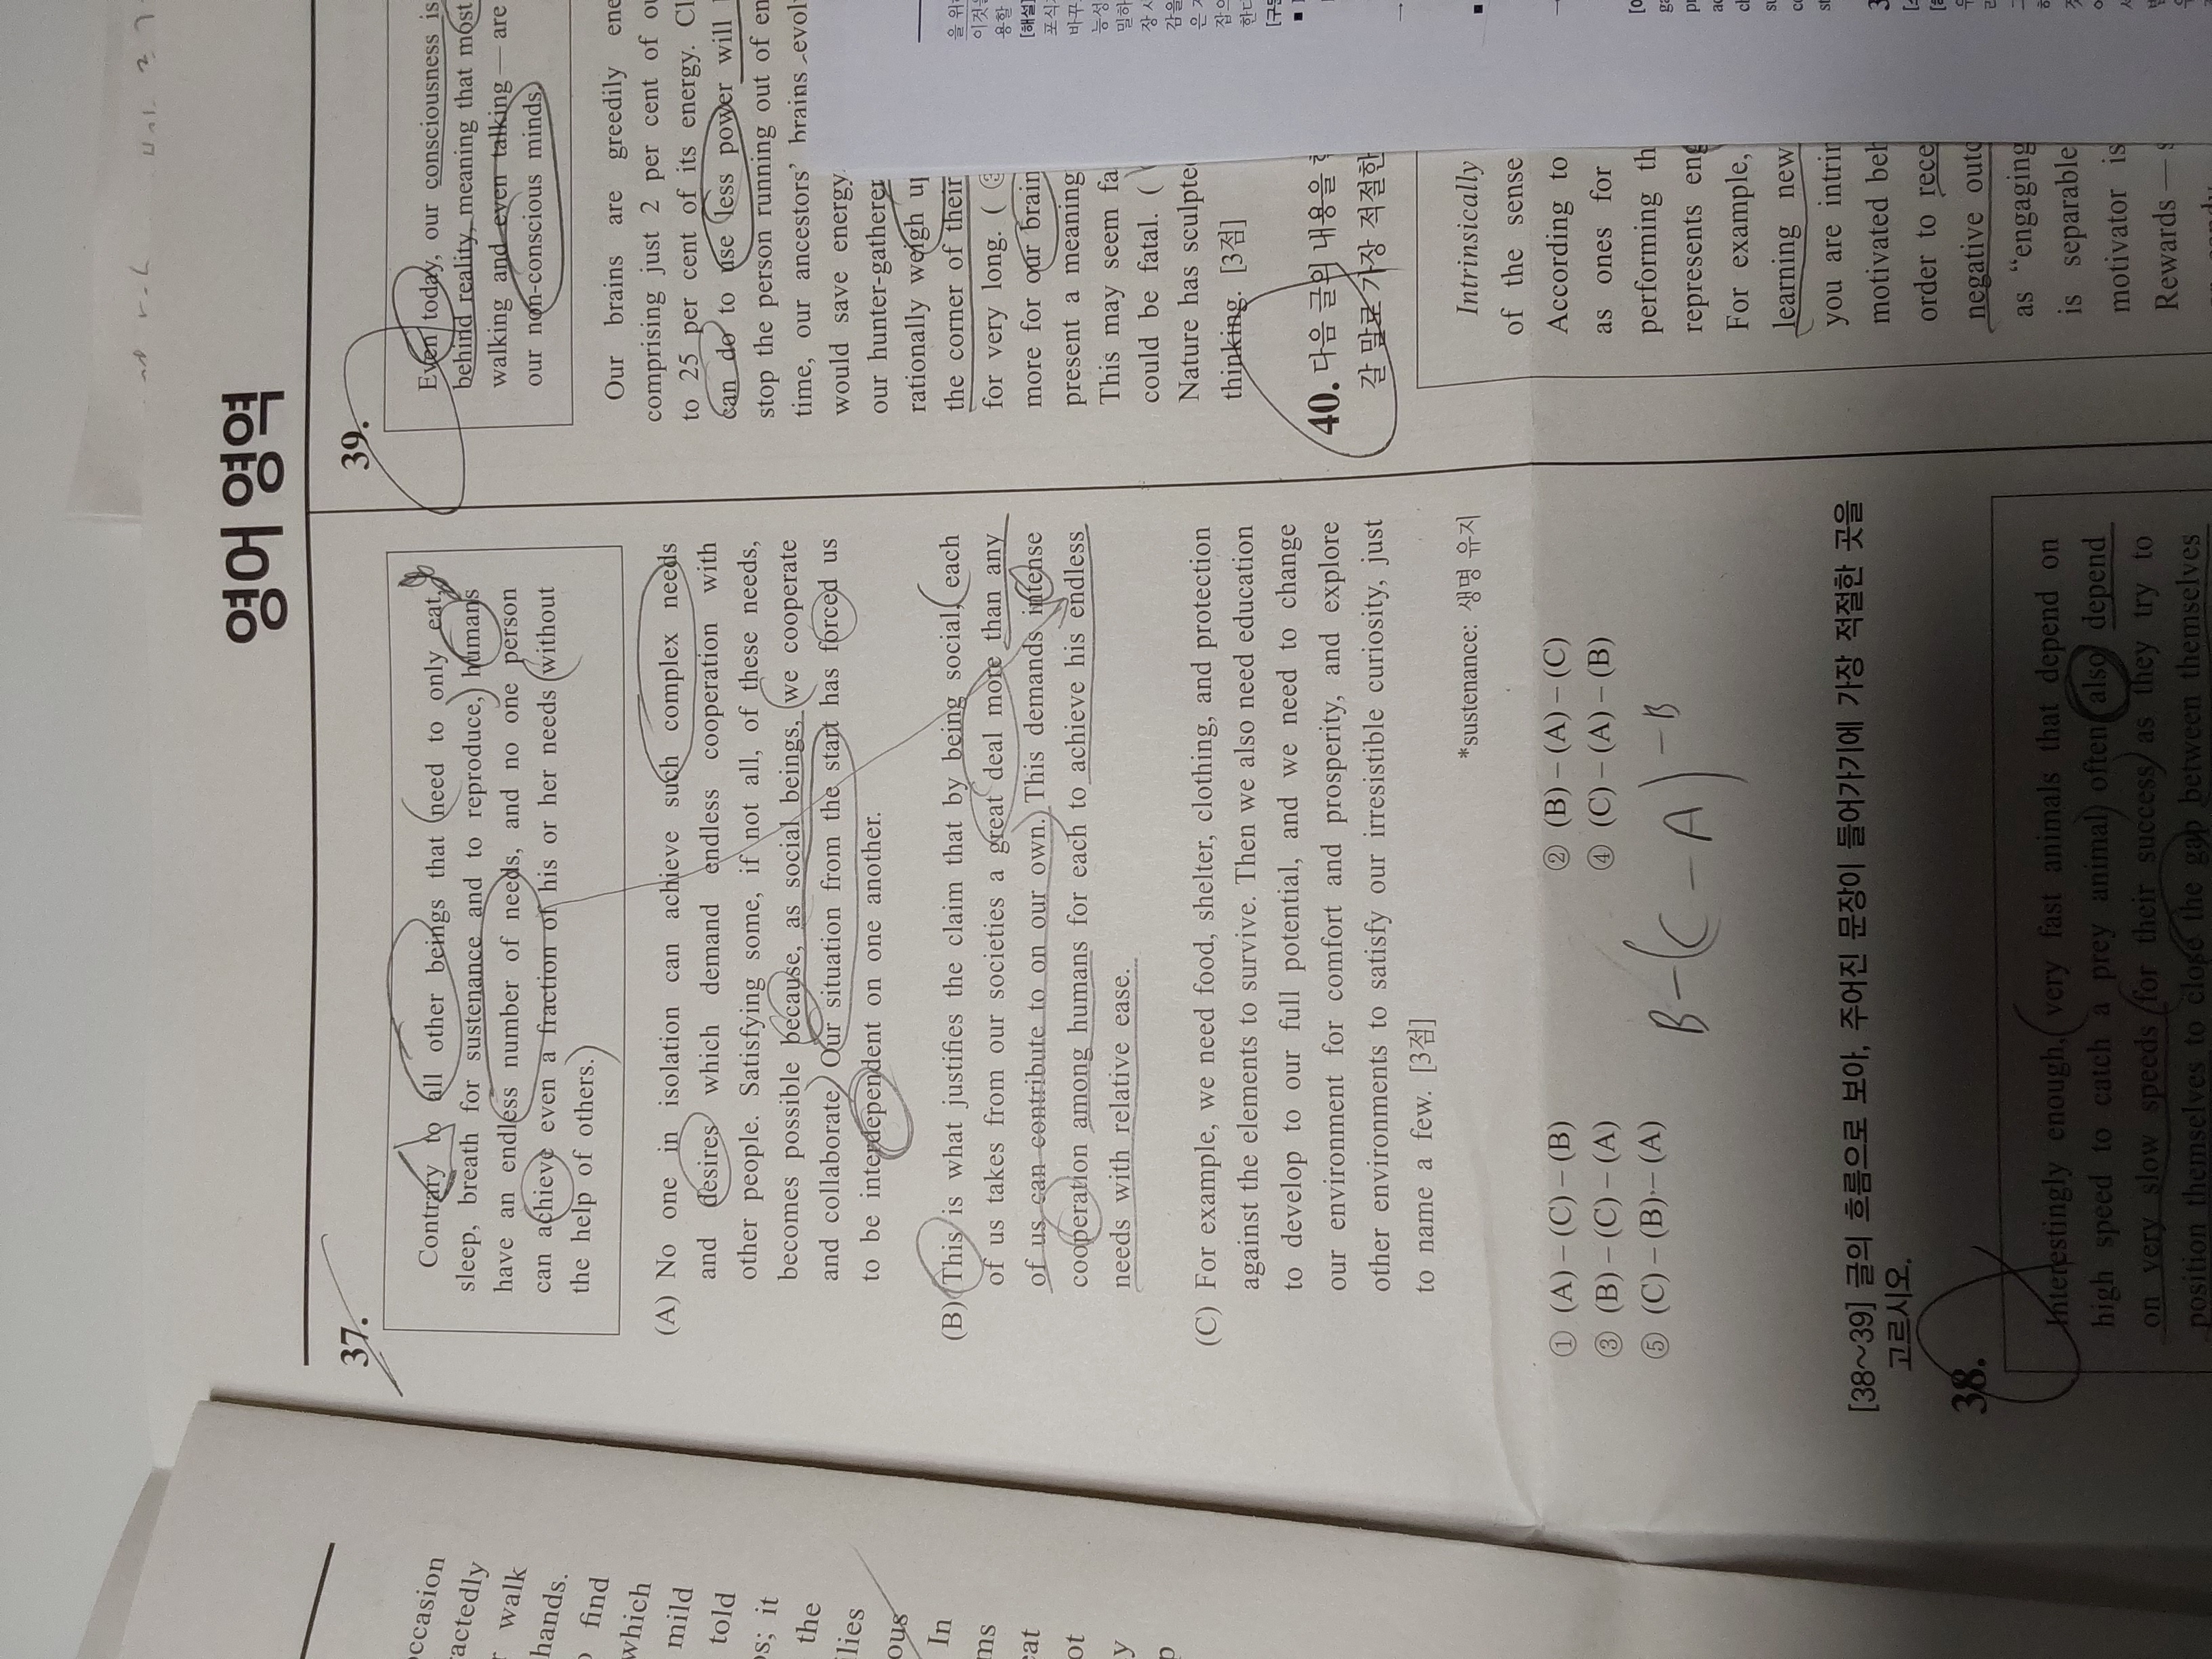 영어 영역
37.
Contrary to all other beings that need to only eat,
sleep, breath for sustenance and to reproduce, humans
have an endless number of needs, and no one person
can achieve even a fraction of his or her needs without
the help of others.
(A) No one in isolation can achieve such complex needs
and desires which demand endless cooperation with
other people. Satisfying some, if not all, of these needs,
becomes possible because, as social beings, we cooperate
and collaborate. Our situation from the start has forced us
to be interdependent on one another.
(B) This is what justifies the claim that by being social, each
of us takes from our societies a great deal more than any
of us can contribute to on our own. This demands intense
cooperation among humans for each to achieve his endless
needs with relative ease.
(C) For example, we need food, shelter, clothing, and protection
against the elements to survive. Then we also need education
to develop to our full potential, and we need to change
our environment for comfort and prosperity, and explore
other environments to satisfy our irresistible curiosity, just
to name a few. [3점]
*sustenance: 생명 유지
① (A)-(C)-(B) ② (B)-(A)-(C)
③ (B)-(C)-(A) ④ (C)-(A)-(B)
⑤ (C)-(B)-(A)
B-(C-A)-B
[38~39] 글의 흐름으로 보아, 주어진 문장이 들어가기에 가장 적절한 곳을
고르시오.
38.
Interestingly enough, very fast animals that depend on
high speed to catch a prey animal often also depend
on very slow speeds for their success as they try to
position themselves to close the gap between themselves
39.
Even today, our consciousness is
behind reality, meaning that most
walking and even talking — are
our non-conscious minds.
Our brains are greedily ene
comprising just 2 per cent of ou
to 25 per cent of its energy. Cl
can do to use less power will
stop the person running out of en
time, our ancestors' brains evol
would save energy.
our hunter-gatherer
rationally weigh up
the corner of their
for very long. (
more for our brain
present a meaning
This may seem fa
could be fatal. (
Nature has sculpte
thinking. [3점]
40. 다음 글의 내용을
갈 말로 가장 적절한
Intrinsically
of the sense
According to
as ones for
performing th
represents eng
For example,
learning new
you are intrin
motivated beh
order to rece
negative outc
as "engaging
is separable
motivator is
Rewards —
occasion
ractedly
walk
hands.
find
which
mild
told
os; it
the
lies
ous
In
ms
eat
ot
y
p